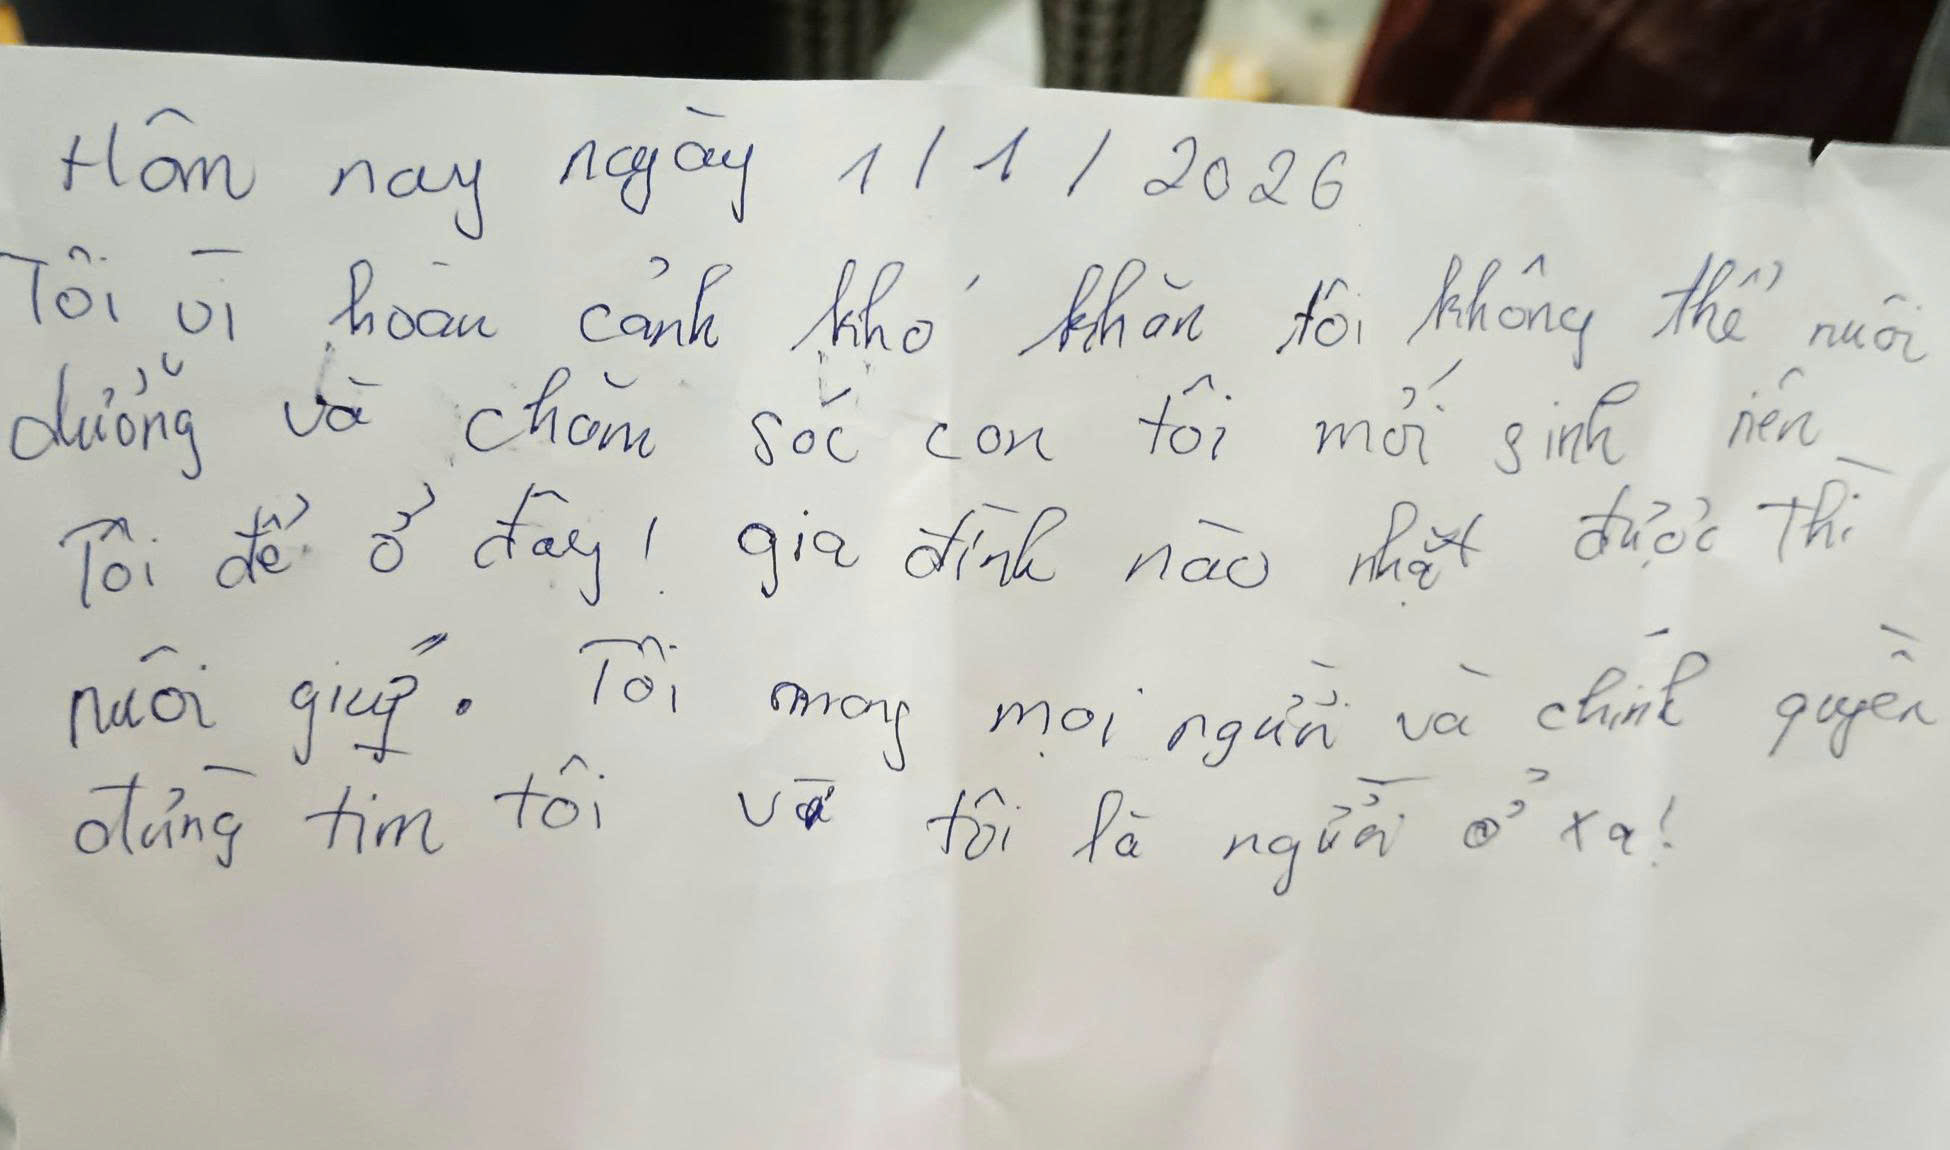 Hôm nay ngày 1/1/2026
Tôi vì hoàn cảnh khó khăn tôi không thể nuôi
dưỡng và chăm sóc con tôi mới sinh nên
Tôi để ở đây! gia đình nào nhặt được Thì
nuôi giúp. Tôi mong mọi người và chính quyền
đừng tìm tôi vì tôi là người ở xa!